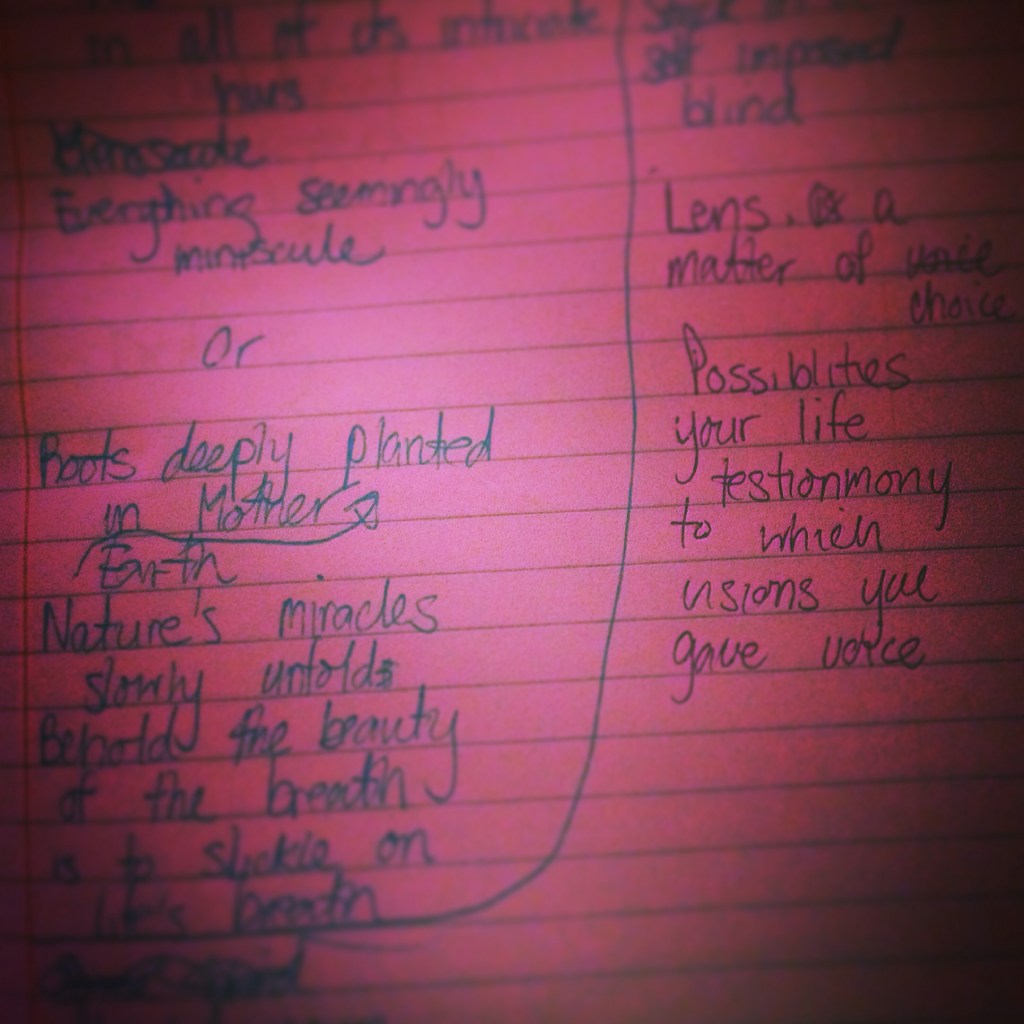 in all of its intricate
hues
Everything seemingly
miniscule
Or
Roots deeply planted
in Mother
Earth
Nature's miracles
slowly unfolds
Behold the beauty
of the breath
is to suckle on
life's breath
self imposed
blind
Lens. a
matter of voice
choice
Possiblities
your life
testionmony
to which
visions you
gave voice